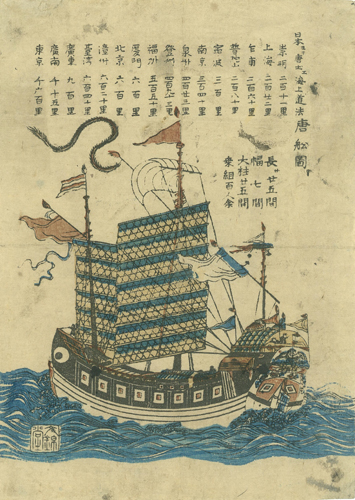 唐船圖
日本ヨリ唐土エ海上道法
崇明 二百十里
上海 二百廿二里
台州 二百六十里
普陀山 二百八十里
寧波 三百里
南京 三百四十里
泉州 四百廿三里
福州 五百五十里
厦門 六百里
北京 六百里
漳州 六百二十里
臺湾 六百四十里
廣東 九百里
廣南 千十五里
東京 千六百里
長 廿五間
幅 七間
大柱 廿五間
乗組 百人余